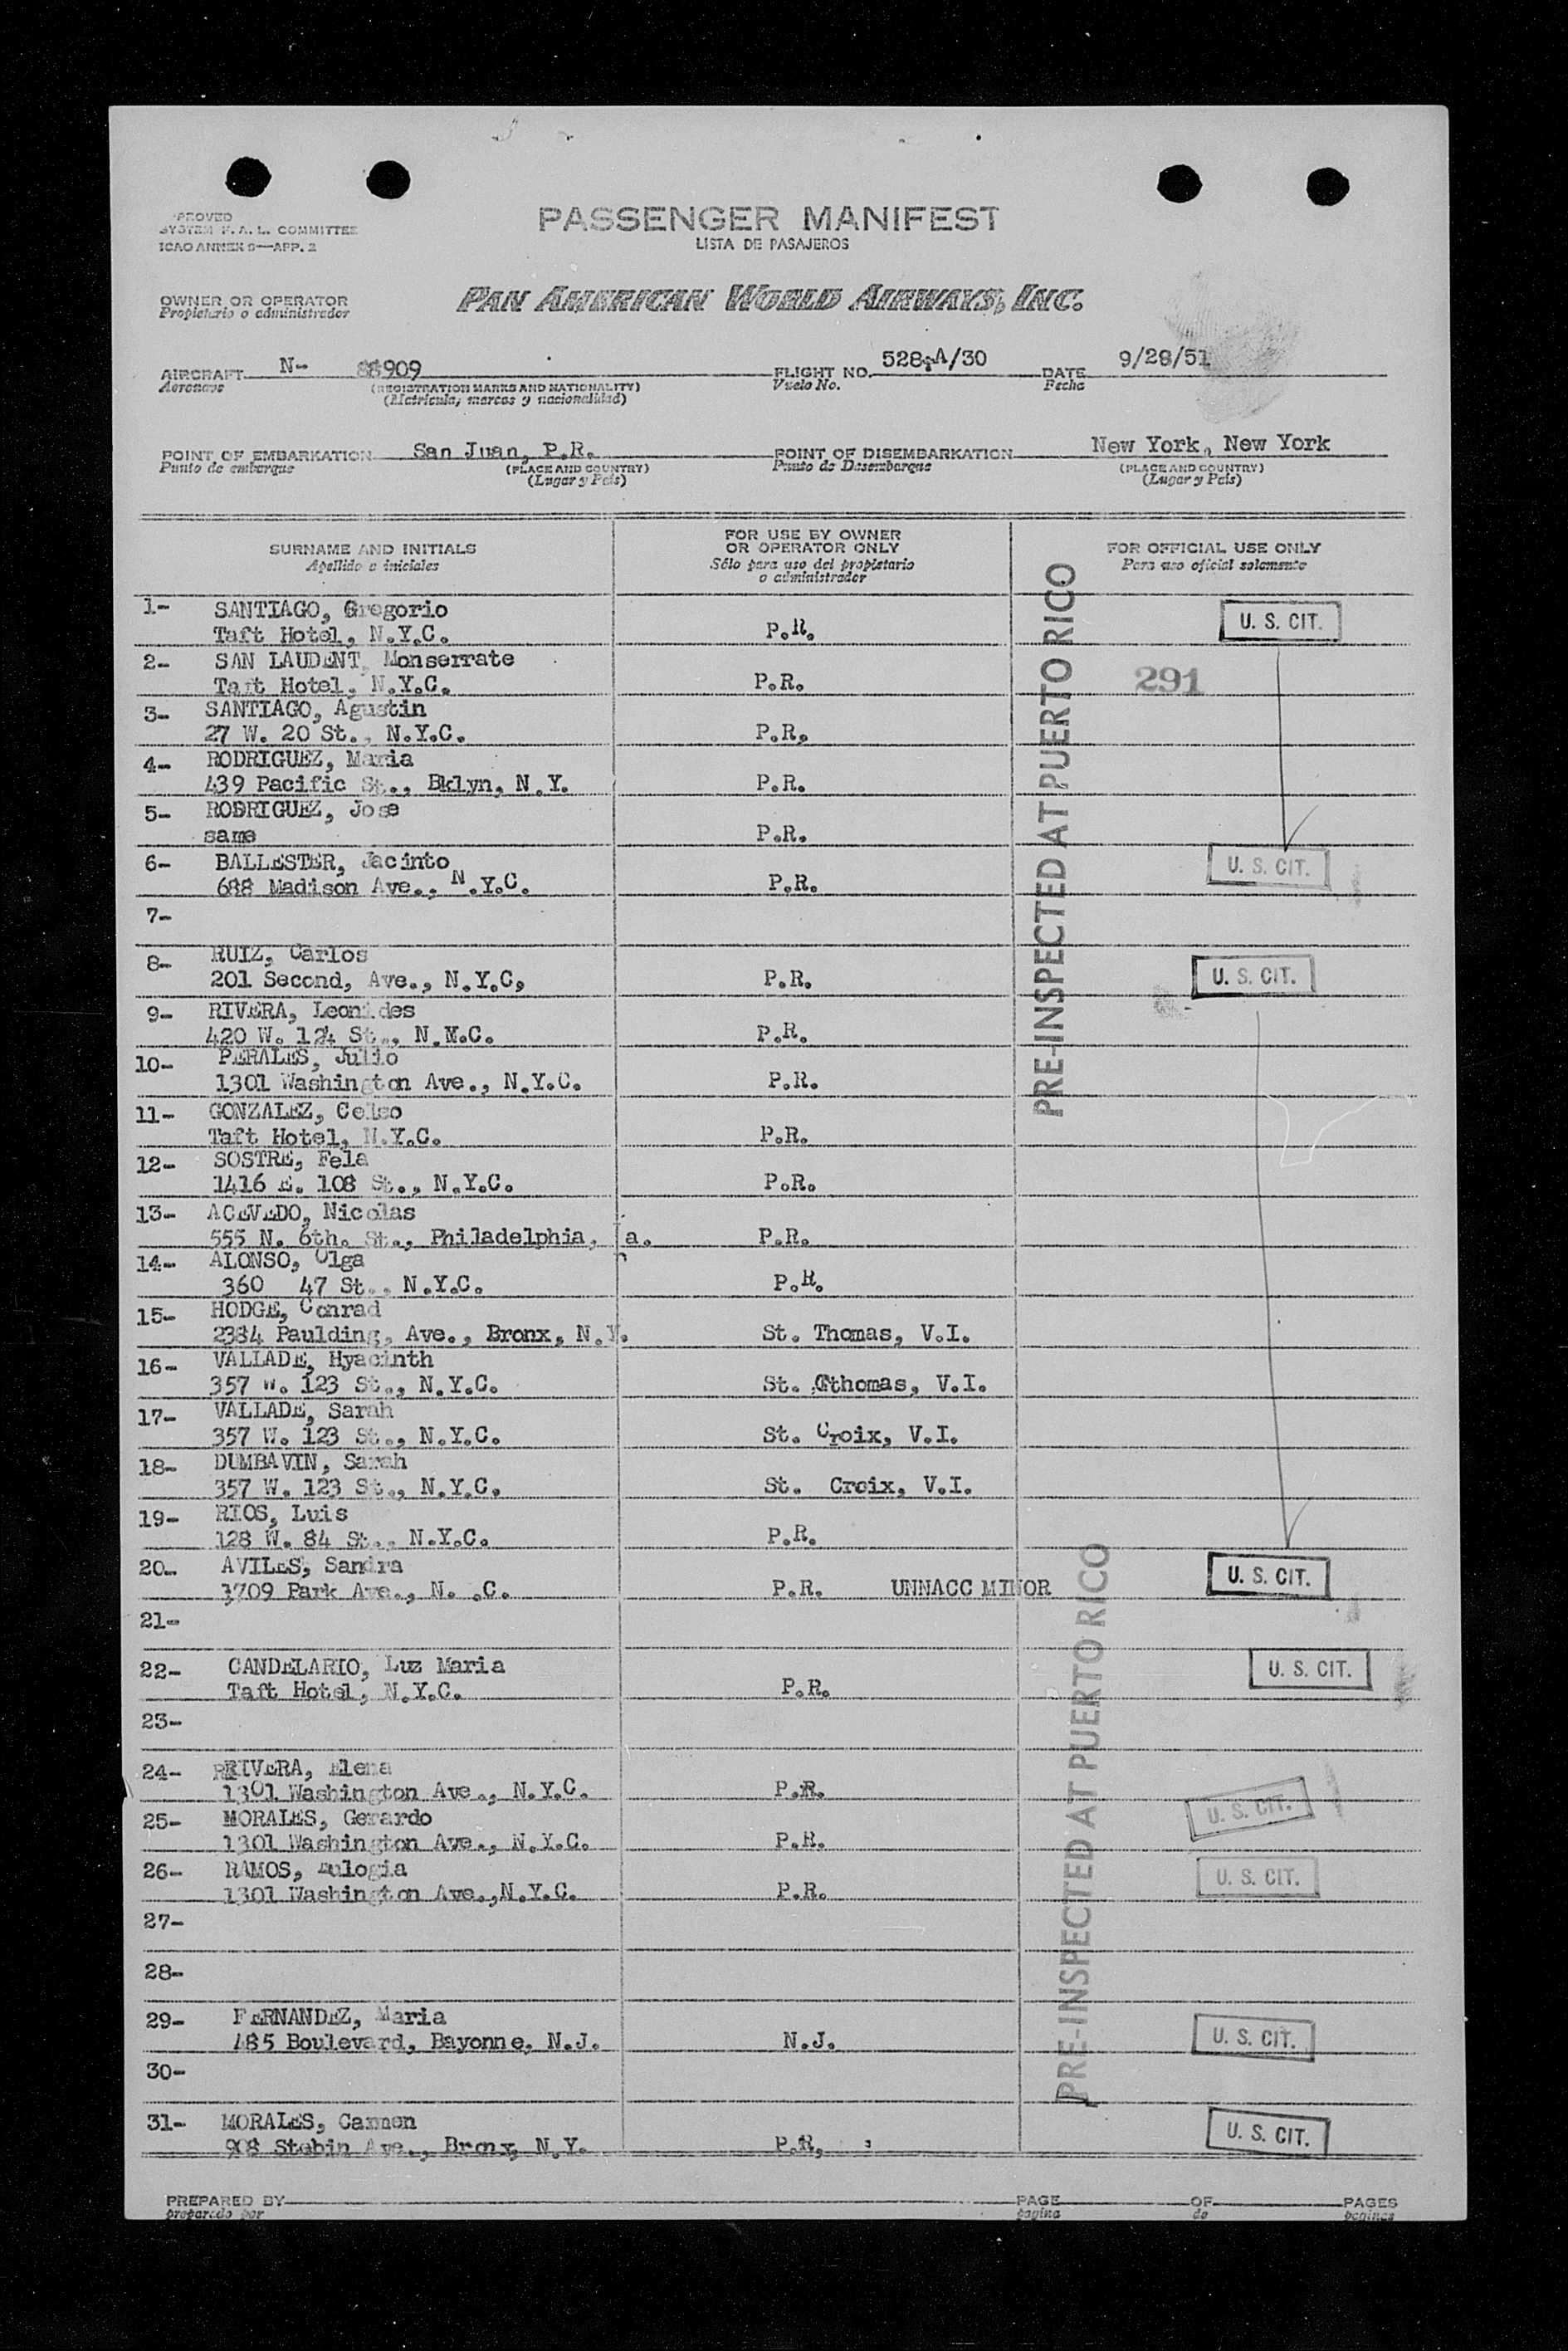 PROVED
SYSTEM F. A. L. COMMITTEE
ICAO ANNEX 9—APP. 2
PASSENGER MANIFEST
LISTA DE PASAJEROS
OWNER OR OPERATOR
Propietario o administrador
PAN AMERICAN WORLD AIRWAYS, INC.
AIRCRAFT N- 88909 FLIGHT NO. 528-A/30 DATE 9/28/51
Aeronave (REGISTRATION MARKS AND NATIONALITY) Vuelo No. Fecha
(Matrícula, marcas y nacionalidad)
POINT OF EMBARKATION San Juan, P.R. POINT OF DISEMBARKATION New York, New York
Punto de embarque (PLACE AND COUNTRY) Punto de Desembarque (PLACE AND COUNTRY)
(Lugar y País) (Lugar y País)
SURNAME AND INITIALS
Apellido e iniciales
FOR USE BY OWNER
OR OPERATOR ONLY
Sólo para uso del propietario
o administrador
FOR OFFICIAL USE ONLY
Para uso oficial solamente
PRE-INSPECTED AT PUERTO RICO
1- SANTIAGO, Gregorio U. S. CIT.
Taft Hotel, N.Y.C. P.R.
2- SAN LAUDENT, Monserrate
Taft Hotel, N.Y.C. P.R. 291
3- SANTIAGO, Agustin
27 W. 20 St., N.Y.C. P.R.
4- RODRIGUEZ, Maria
439 Pacific St., Bklyn, N.Y. P.R.
5- RODRIGUEZ, Jose
same P.R.
6- BALLESTER, Jacinto U. S. CIT.
688 Madison Ave., N.Y.C. P.R.
7-
8- RUIZ, Carlos
201 Second, Ave., N.Y.C, P.R. U. S. CIT.
9- RIVERA, Leonides
420 W. 124 St., N.Y.C. P.R.
10- PERALES, Julio
1301 Washington Ave., N.Y.C. P.R.
11- GONZALEZ, Celso
Taft Hotel, N.Y.C. P.R.
12- SOSTRE, Fela
1416 E. 108 St., N.Y.C. P.R.
13- ACEVEDO, Nicolas
555 N. 6th. St., Philadelphia, a. P.R.
14- ALONSO, Olga
360 47 St., N.Y.C. P.R.
15- HODGE, Conrad
2384 Paulding, Ave., Bronx, N.Y. St. Thomas, V.I.
16- VALLADE, Hyacinth
357 W. 123 St., N.Y.C. St. Thomas, V.I.
17- VALLADE, Sarah
357 W. 123 St., N.Y.C. St. Croix, V.I.
18- DUMBAVIN, Sarah
357 W. 123 St., N.Y.C. St. Croix, V.I.
19- RIOS, Luis
128 W. 84 St., N.Y.C. P.R.
20- AVILES, Sandra U. S. CIT.
1709 Park Ave., N. .C. P.R. UNNACC MINOR
PRE-INSPECTED AT PUERTO RICO
21-
22- CANDELARIO, Luz Maria U. S. CIT.
Taft Hotel, N.Y.C. P.R.
23-
24- RIVERA, Elena
1301 Washington Ave., N.Y.C. P.R. U. S. CIT.
25- MORALES, Gerardo
1301 Washington Ave., N.Y.C. P.R.
26- RAMOS, Eulogia U. S. CIT.
1301 Washington Ave.,N.Y.C. P.R.
27-
28-
29- FERNANDEZ, Maria
485 Boulevard, Bayonne, N.J. N.J. U. S. CIT.
30-
31- MORALES, Carmen U. S. CIT.
908 Stebin Ave., Bronx, N.Y. P.R,
PREPARED BY PAGE OF PAGES
preparado por página de páginas